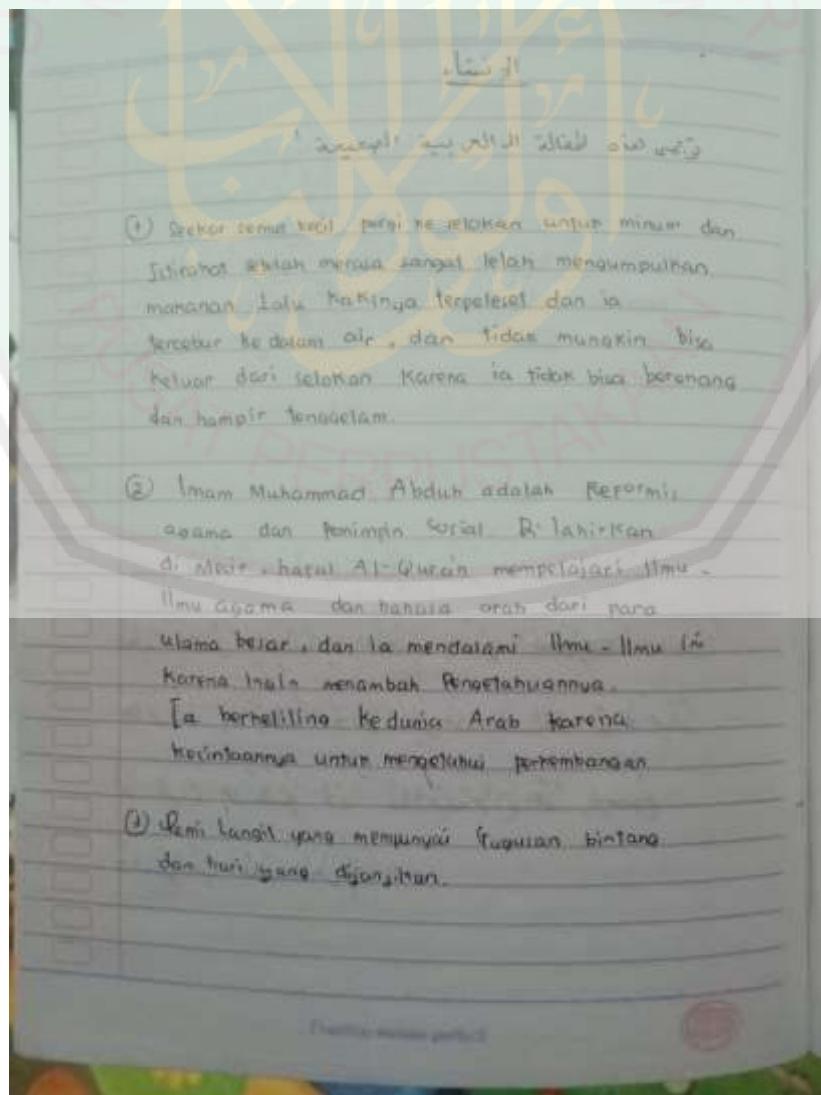 الإنشاء
ترجمي هذه المقالة الى العربية الصحيحة !
① Seekor semut kecil pergi ke selokan untuk minum dan
Istirahat setelah merasa sangat lelah mengumpulkan
makanan lalu kakinya terpeleset dan ia
tercebur ke dalam air, dan tidak mungkin bisa
keluar dari selokan karena ia tidak bisa berenang
dan hampir tenggelam.
② Imam Muhammad Abduh adalah Reformis
agama dan Pemimpin Sosial. Di lahirkan
di Mesir, hafal Al-Qur'an mempelajari Ilmu-
Ilmu agama dan bahasa arab dari para
ulama besar, dan ia mendalami Ilmu-Ilmu ini
karena Ingin menambah Pengetahuannya.
Ia berkeliling kedunia Arab karena
kecintaannya untuk mengetahui perkembangan.
③ Demi Langit yang mempunyai Gugusan bintang
dan hari yang dijanjikan.
PUSAT PERPUSTAKAAN